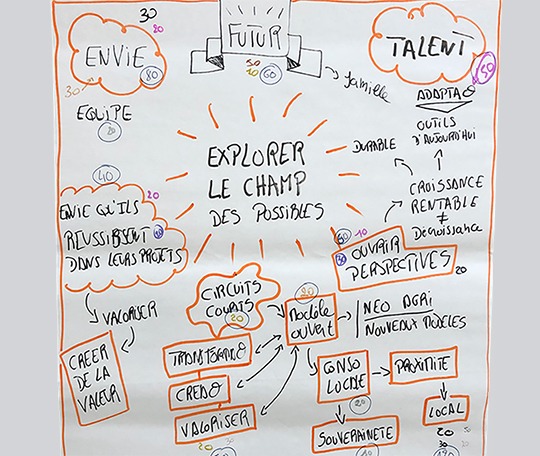 30
20
ENVIE
80
30
EQUIPE
20
FUTUR
50
10
60
famille
TALENT
50
ADAPTA°
OUTILS
D'AUJOURD'HUI
DURABLE
CROISSANCE
RENTABLE
≠
Décroissance
EXPLORER
LE CHAMP
DES POSSIBLES
40
20
ENVIE QU'ILS
RÉUSSISSENT
DANS LEURS PROJETS
VALORISER
CREER
DE LA
VALEUR
60
10
OUVRIR
PERSPECTIVES
20
CIRCUITS
COURTS
20
20
Modèle
OUVERT
NEO AGRI
NOUVEAUX MODELES
CREDO
VALORISER
20
30
CONSO
LOCALE
20
PROXIMITE
SOUVERAINETE
LOCAL
20
30